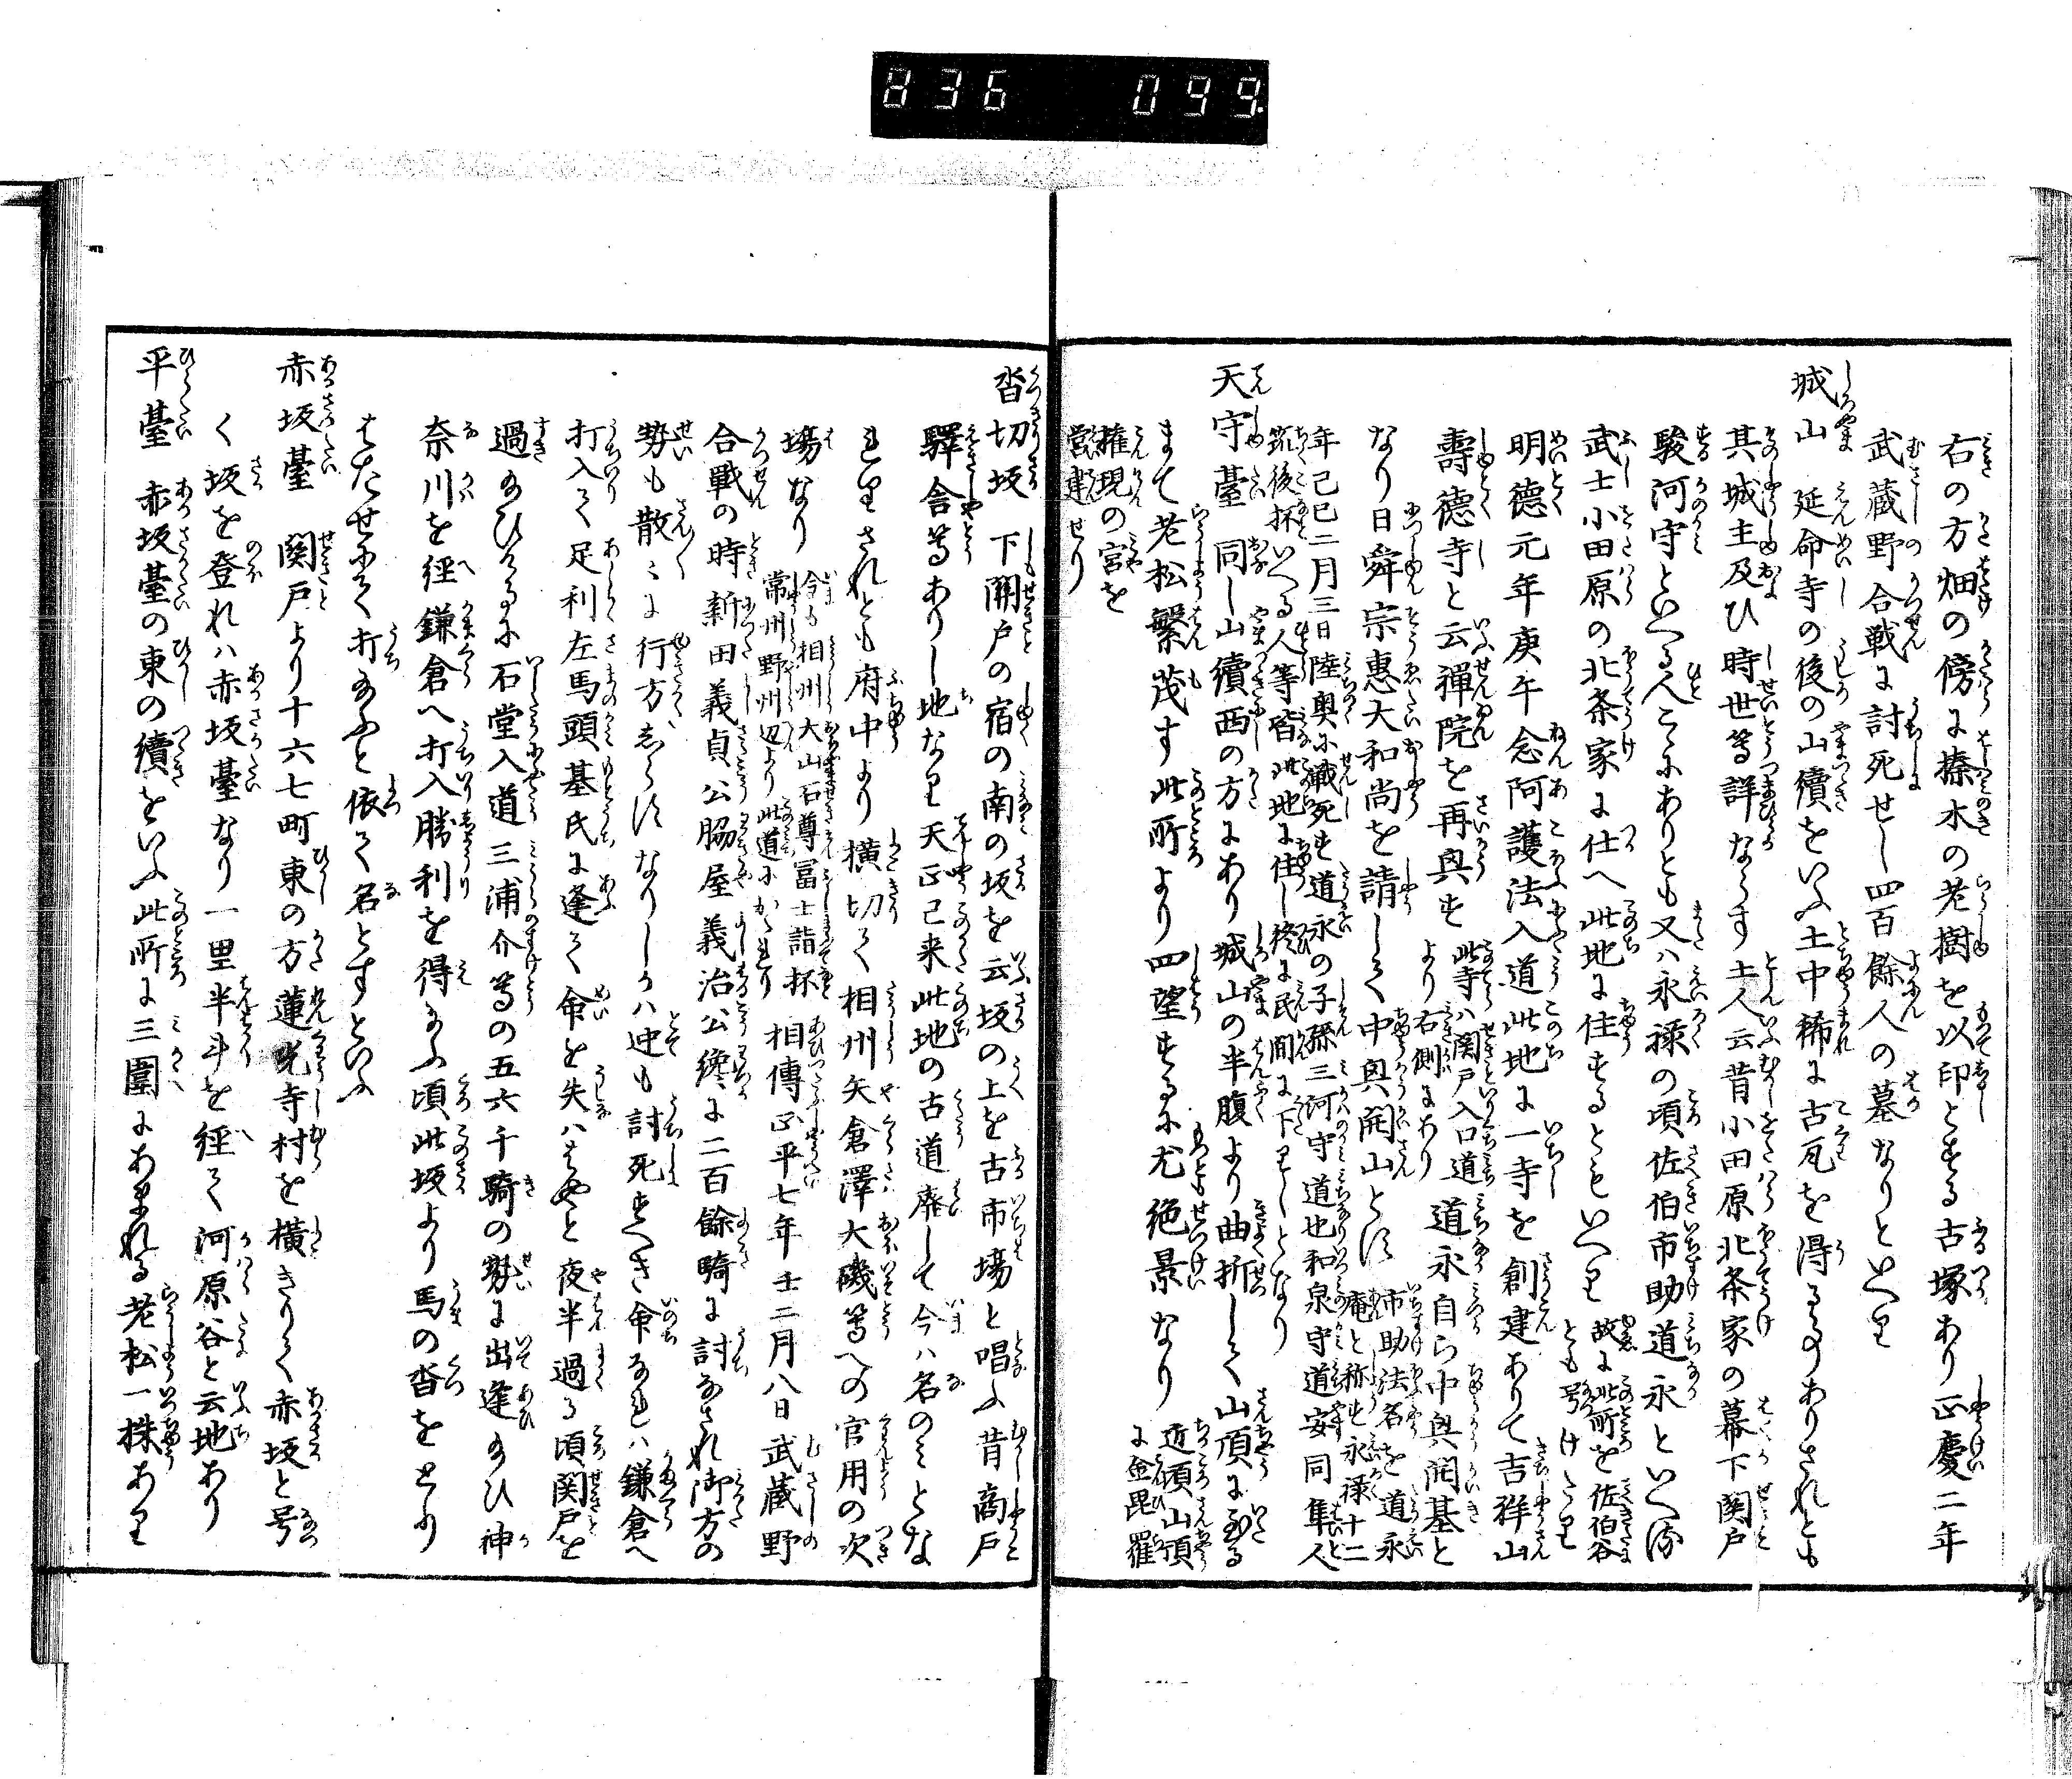 836 099
右の方畑の傍に榛木の老樹を以印とする古塚あり正慶二年
武蔵野合戦に討死せし四百餘人の墓なりといへり
城山 延命寺の後の山續をいふ土中稀に古瓦を得る事ありされとも
其城主及ひ時世等詳ならす土人云昔小田原北条家の幕下関戸
駿河守といへる人こゝにありとも又ハ永禄の頃佐伯市助道永といへる
武士小田原の北条家に仕へ此地に住するともいへり 故に此所を佐伯谷とも号けたり
明徳元年庚午念阿護法入道此地に一寺を創建ありて吉祥山
壽徳寺と云禅院を再興す 此寺ハ関戸入口道より右側にあり 道永自ら中興開基と
なり日舜宗惠大和尚を請して中興開山とす 市助法名を道永庵と称す永禄十二
年己巳二月三日陸奥に戦死す道永の子孫三河守道也和泉守道安同隼人
筑後抔いへる人等皆此地に住し終に民間に下るとなり
天守臺 同し山續西の方にあり城山の半腹より曲折して山頂に至る
まて老松繁茂す此所より四望するに尤絶景なり 近頃山頂に金毘羅
権現の宮を
営建せり
沓切坂 下関戸の宿の南の坂を云坂の上を古市場と唱ふ昔商戸
驛舎等ありし地なり天正已来此地の古道廃して今ハ名のミとな
れりされとも府中より横切て相州矢倉澤大磯等への官用の次
場なり 今も相州大山石尊冨士詣抔常州野州辺より此道にかゝれり 相傳正平七年壬二月八日武蔵野
合戰の時新田義貞公脇屋義治公纔に二百餘騎に討なされ御方の
勢も散々に行方しらすなりしかハ迚も討死すへき命なれハ鎌倉へ
打入て足利左馬頭基氏に逢て命を失ハはやと夜半過る頃関戸を
過給ひけるに石堂入道三浦介等の五六千騎の勢に出逢給ひ神
奈川を經鎌倉へ打入勝利を得給ふ頃此坂より馬の沓をとり
はたせにて打給ふと依て名とすといふ
赤坂臺 関戸より十六七町東の方蓮光寺村を横きりて赤坂と号
く坂を登れハ赤坂臺なり一里半斗を經て河原谷と云地あり
平臺 赤坂臺の東の續をいふ此所に三圍にあまれる老松一株あり